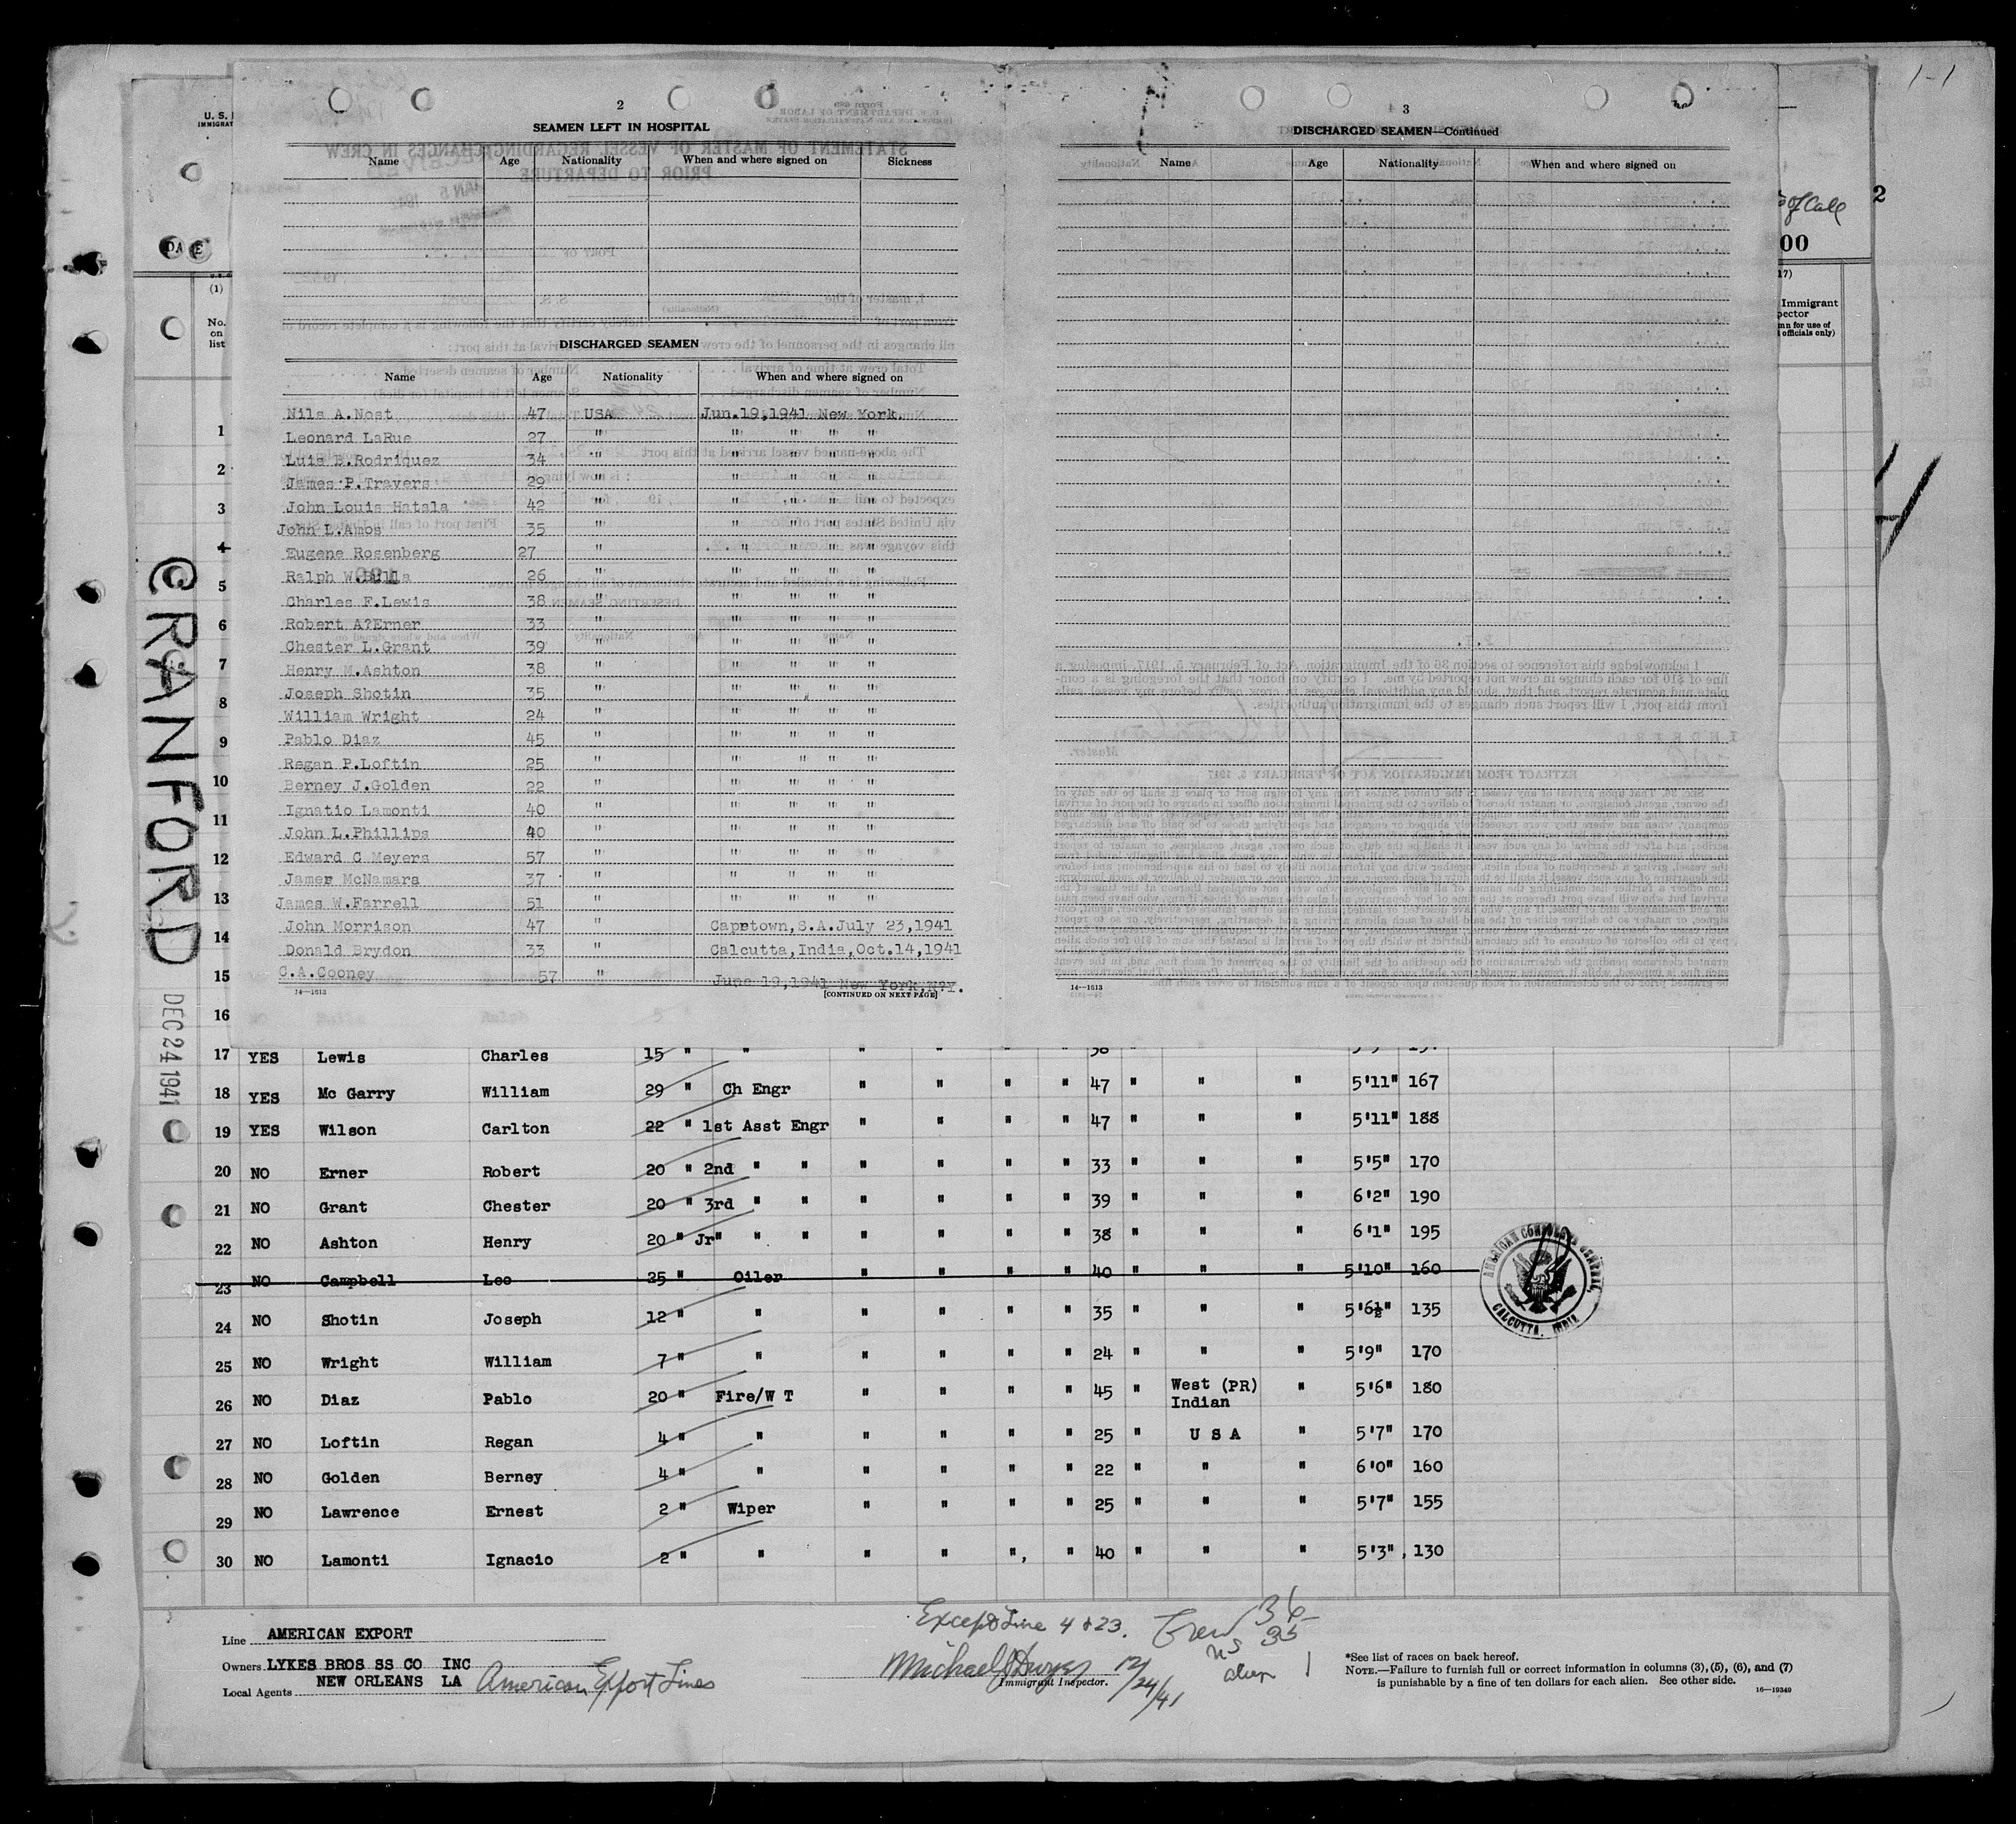 1-1
U. S.
IMMIGRAT
2
SEAMEN LEFT IN HOSPITAL
Name Age Nationality When and where signed on Sickness
DISCHARGED SEAMEN
Name Age Nationality When and where signed on
Nils A.Nost 47 USA Jun.19,1941 New York.
Leonard LaRue 27 " " " " "
Luis B.Rodriquez 34 " " " " "
James P.Travers 29 " " " " "
John Louis Hatala 42 " " " " "
John L.Amos 35 " " " " "
Eugene Rosenberg 27 " " " " "
Ralph W.Bulla 26 " " " " "
Charles F.Lewis 38 " " " " "
Robert A?Erner 33 " " " " "
Chester L.Grant 39 " " " " "
Henry M.Ashton 38 " " " " "
Joseph Shotin 35 " " " " "
William Wright 24 " " " " "
Pablo Diaz 45 " " " " "
Regan P.Loftin 25 " " " " "
Berney J.Golden 22 " " " " "
Ignatio Lamonti 40 " " " " "
John L.Phillips 40 " " " " "
Edward C Meyers 57 " " " " "
James McNamara 37 " " " " "
James W.Farrell 51 " " " " "
John Morrison 47 " Capetown,S.A.July 23,1941
Donald Brydon 33 " Calcutta,India,Oct.14,1941
C.A.Cooney 57 " June 19,1941 New York.N?Y.
14—1613
[CONTINUED ON NEXT PAGE]
3
DISCHARGED SEAMEN—Continued
Name Age Nationality When and where signed on
14—1613
of Call
2
00
17)
Immigrant
pector
mn for use of
officials only)
(1)
No.
on
list
1
2
3
4
5
6
7
8
9
10
11
12
13
14
15
16
CRANFORD
DEC 24 1941
17 YES Lewis Charles 15 " " " " " " 38 "
18 YES Mc Garry William 29 " Ch Engr " " " " 47 " " " 5'11" 167
19 YES Wilson Carlton 22 " 1st Asst Engr " " " " 47 " " " 5'11" 188
20 NO Erner Robert 20 " 2nd " " " " " " 33 " " " 5'5" 170
21 NO Grant Chester 20 " 3rd " " " " " " 39 " " " 6'2" 190
22 NO Ashton Henry 20 " Jr" " " " " " " 38 " " " 6'1" 195
23 NO Campbell Leo 25 " Oiler " " " " 40 " " " 5'10" 160
24 NO Shotin Joseph 12 " " " " " " 35 " " " 5'6½" 135
25 NO Wright William 7 " " " " " " 24 " " " 5'9" 170
26 NO Diaz Pablo 20 " Fire/W T " " " " 45 " West (PR) Indian " 5'6" 180
27 NO Loftin Regan 4 " " " " " " 25 " U S A " 5'7" 170
28 NO Golden Berney 4 " " " " " " 22 " " " 6'0" 160
29 NO Lawrence Ernest 2 " Wiper " " " " 25 " " " 5'7" 155
30 NO Lamonti Ignacio 2 " " " " ", " 40 " " " 5'3", 130
AMERICAN CONSULATE GENERAL,
CALCUTTA, INDIA
Line AMERICAN EXPORT
Owners LYKES BROS SS CO INC
NEW ORLEANS LA
Local Agents American Export Lines
Except Line 4 & 23.
Crew 36
US 35
alien 1
Michael J Dwyer 12/24/41
Immigrant Inspector.
*See list of races on back hereof.
NOTE.—Failure to furnish full or correct information in columns (3), (5), (6), and (7)
is punishable by a fine of ten dollars for each alien. See other side.
16—19349